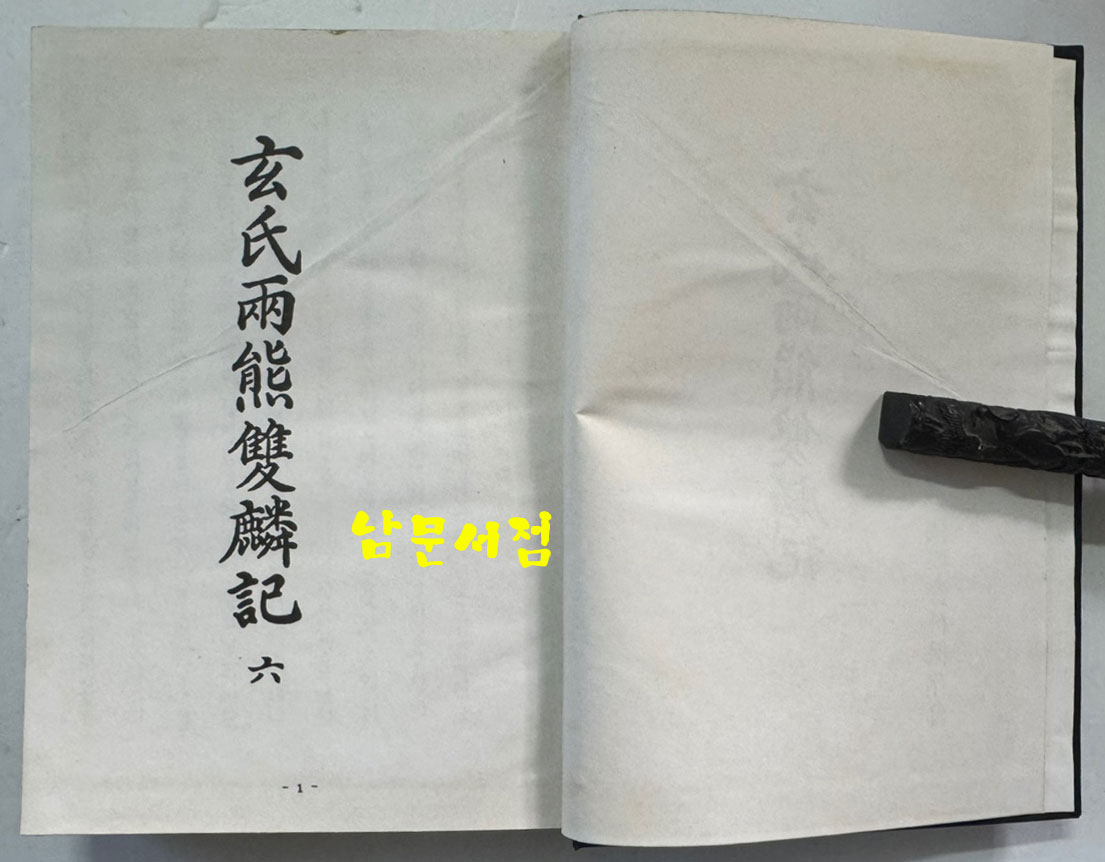 玄氏兩熊雙麟記 六
남문서점
- 1 -